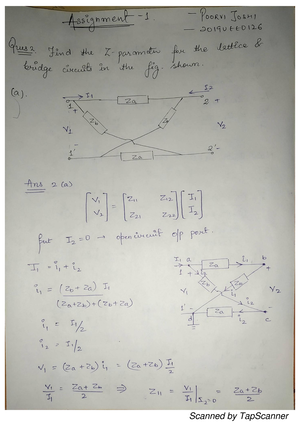 Assignment -1
- POORVI JOSHI
- 2019UEE0126
Ques2 Find the Z-parameter for the lattice &
bridge circuits in the fig. shown.
(a).
I1
Za
I2
1 +
2 +
V1
V2
1'-
Za
2'-
Ans 2 (a)
[V1 V2] = [Z11 Z12 Z21 Z22] [I1 I2]
put I2 = 0 → open circuit o/p port.
I1 = i1 + i2
i1 = (Zb + Za) I1
(Za+Zb)+(Zb+Za)
i1 = I1/2
i2 = I1/2
V1 = (Za+Zb) i1 = (Za+Zb) I1/2
V1/I1 = Za + Zb / 2 ⇒ Z11 = V1/I1 | I2=0 = Za+Zb / 2
I1 a
Za
i1
b
V1
V2
i2
Za
d
c
Scanned by TapScanner